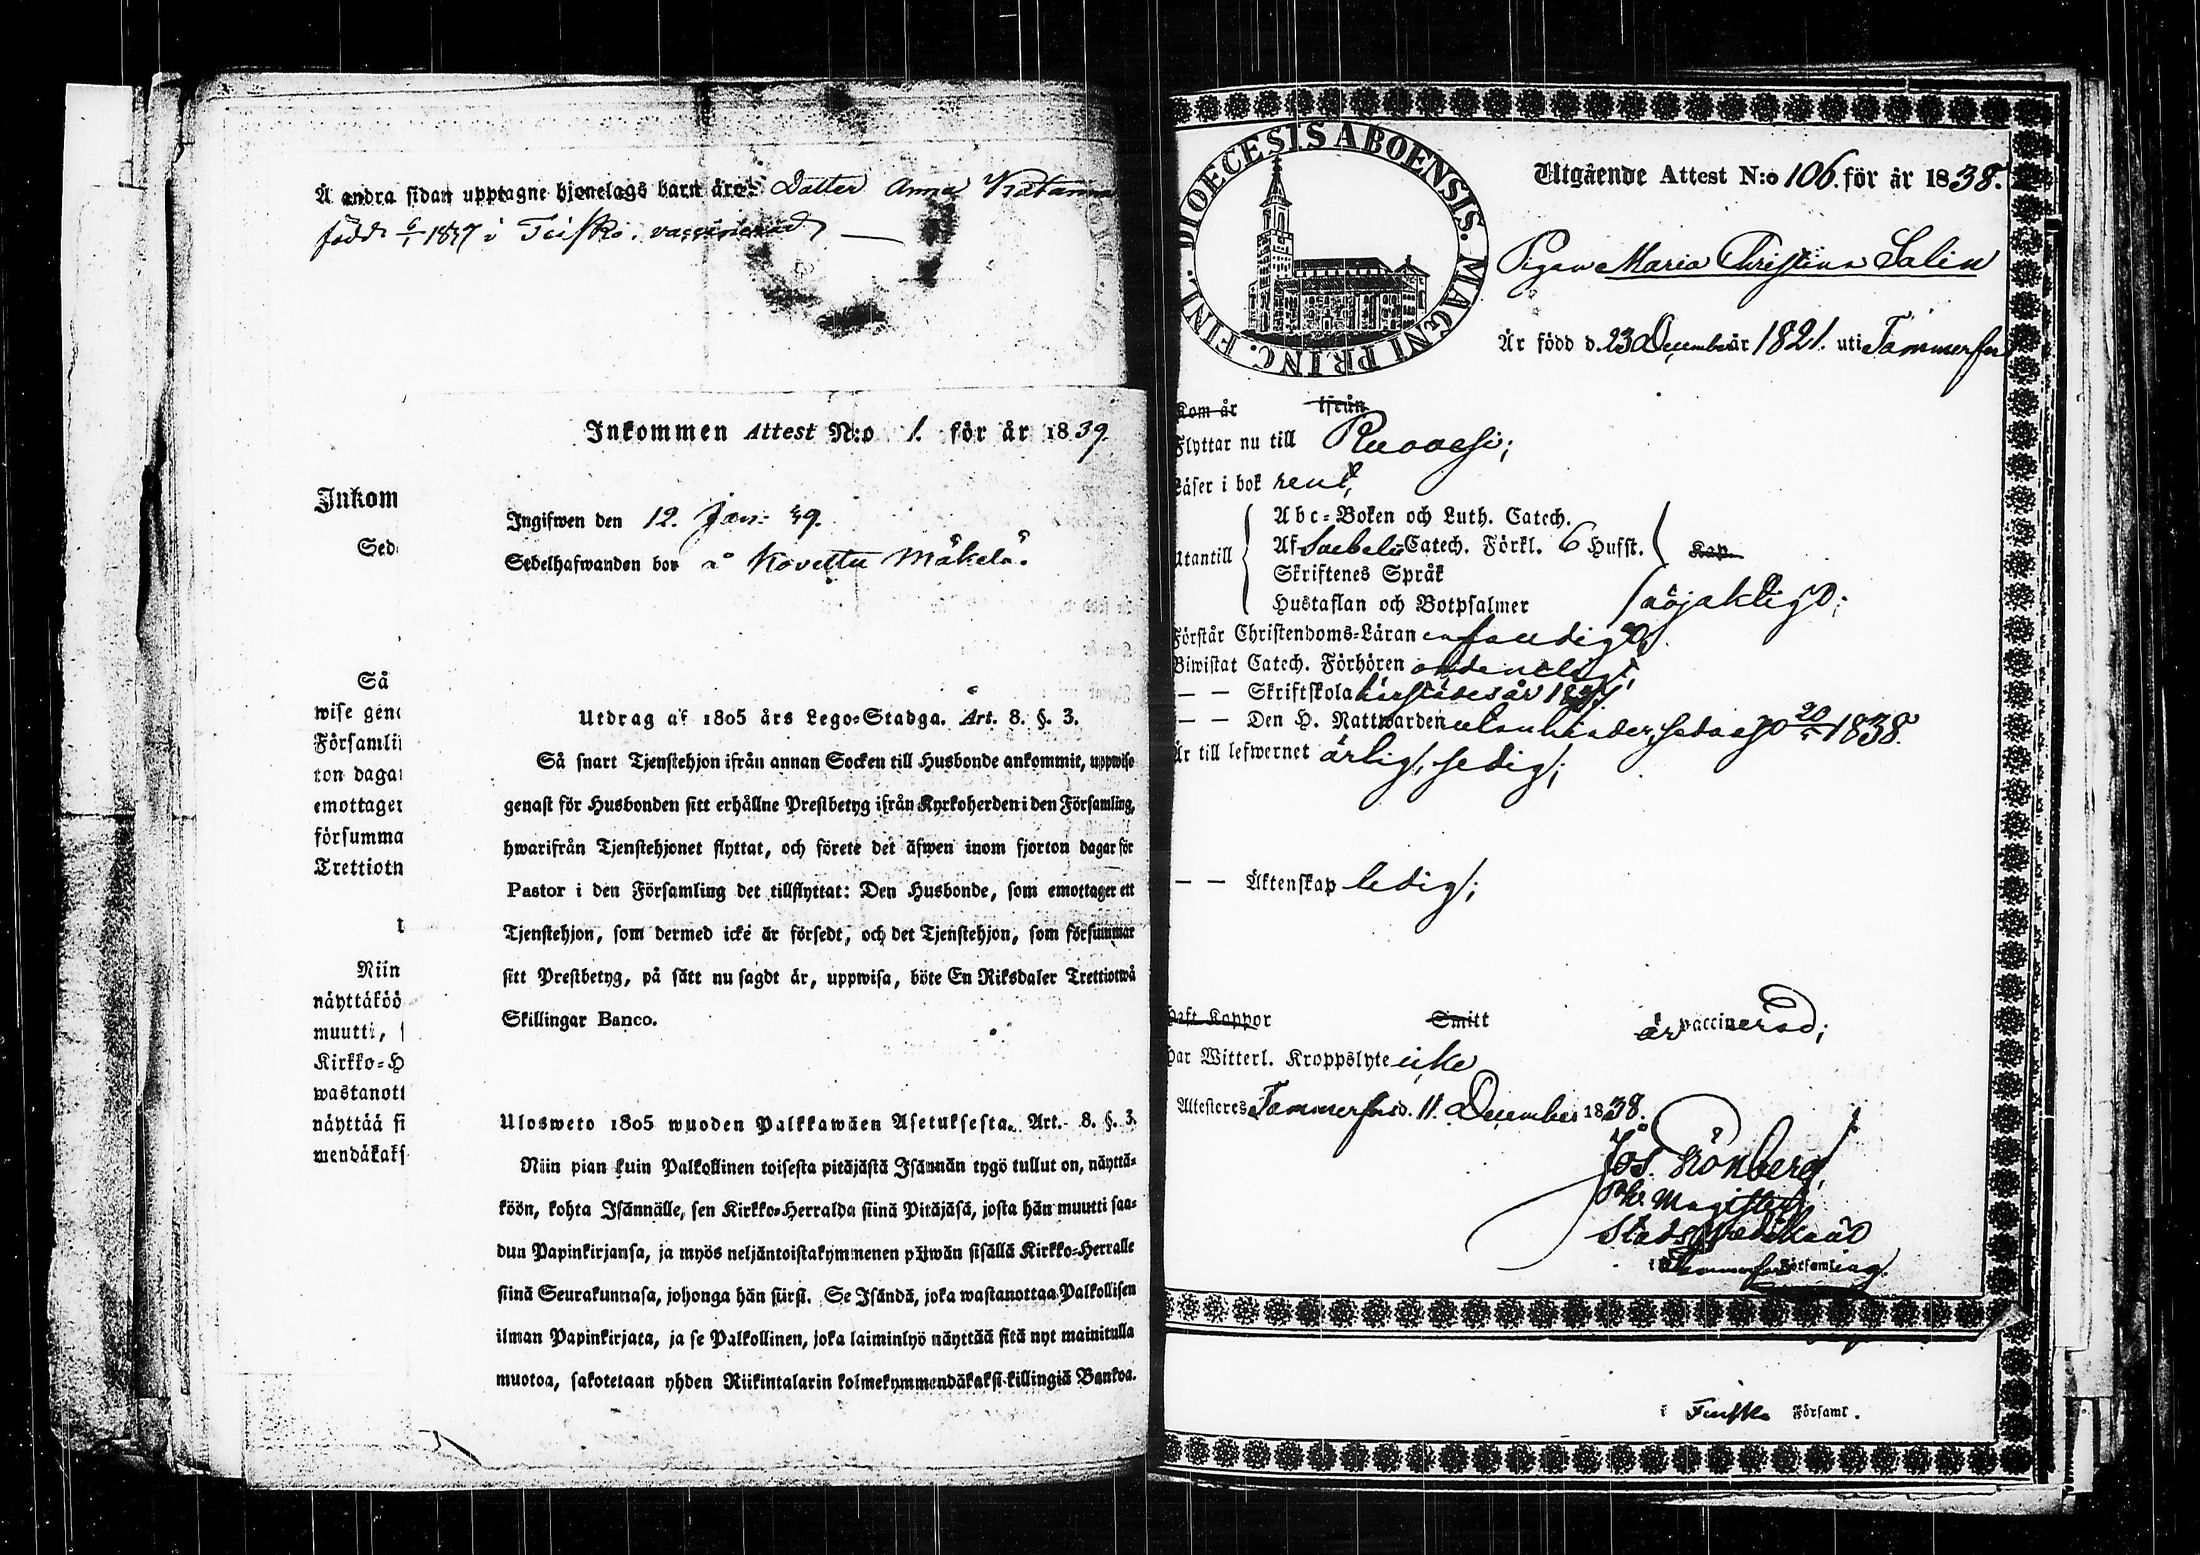 Å andra sidan upptagne hjonelags barn äro: Dotter Anna
född 6/1 1837 i Teisko. vaccinerad
Inkommen Attest N:o 1. för år 1839.
Inkom
Ingifwen den 12. Jan: 39.
Sed
Sedelhafwanden bor å Kovettu Mäkelä.
Så
wise gen
Församli
ton dagar
emottager
försumma
Trettiotw
Niin
näyttäköö
muutti,
Kirkko-H
wastanott
näyttää si
mendäkaks
Utdrag af 1805 års Lego-Stadga. Art. 8. §. 3.
Så snart Tjenstehjon ifrån annan Socken till Husbonde ankommit, uppwise
genast för Husbonden sitt erhållne Prestbetyg ifrån Kyrkoherden i den Församling,
hwarifrån Tjenstehjonet flyttat, och förete det äfwen inom fjorton dagar för
Pastor i den Församling det tillflyttat: Den Husbonde, som emottager ett
Tjenstehjon, som dermed icke är försedt, och det Tjenstehjon, som försummar
sitt Prestbetyg, på sätt nu sagdt är, uppwisa, böte En Riksdaler Trettiotwå
Skillingar Banco.
Ulosweto 1805 wuoden Palkkawäen Asetuksesta. Art. 8. §. 3.
Niin pian kuin Palkollinen toisesta pitäjästä Isännän tygö tullut on, näyttä-
köön, kohta Isännälle, sen Kirkko-Herralda siinä Pitäjäsä, josta hän muutti saa-
dun Papinkirjansa, ja myös neljäntoistakymmenen päiwän sisällä Kirkko-Herralle
siinä Seurakunnasa, johonga hän siirsi. Se Isändä, joka wastanottaa Palkollisen
ilman Papinkirjata, ja se Palkollinen, joka laiminlyö näyttää sitä nyt mainitulla
muotoa, sakotetaan yhden Riikintalarin kolmekymmendäkaksi killingiä Bankoa.
DIOECESIS ABOENSIS. MAGNI PRINC. FINL.
Utgående Attest N:o 106. för år 1838.
Pigan Maria Christina Salin
Är född d. 23 December år 1821. uti Tammerfors
Kom år ifrån
Flyttar nu till Ruovesi;
Läser i bok rent,
Utantill
Abc-Boken och Luth. Catech.
Af Saebelii Catech. Förkl. 6 Hufst. Kap.
Skriftenes Språk
Hustaflan och Botpsalmer nöjaktigt;
Förstår Christendoms-Läran enfaldigt,
Biwistat Catech. Förhören ordentligt,
— — Skriftskola härstädes år
— — Den H. Nattwarden utan hinder, sednast 1838.
Är till lefwernet ärlig, sedig;
— — Äktenskap ledig;
Haft Kappor Smitt är vaccinerad;
Har Witterl. Kroppslyte icke
Attesteres Tammerfors d. 11. December 1838.
Jos. Grönberg,
Ph. Magister
Stadspredikant
i Tammerfors Församling.
i Teisko Församl.